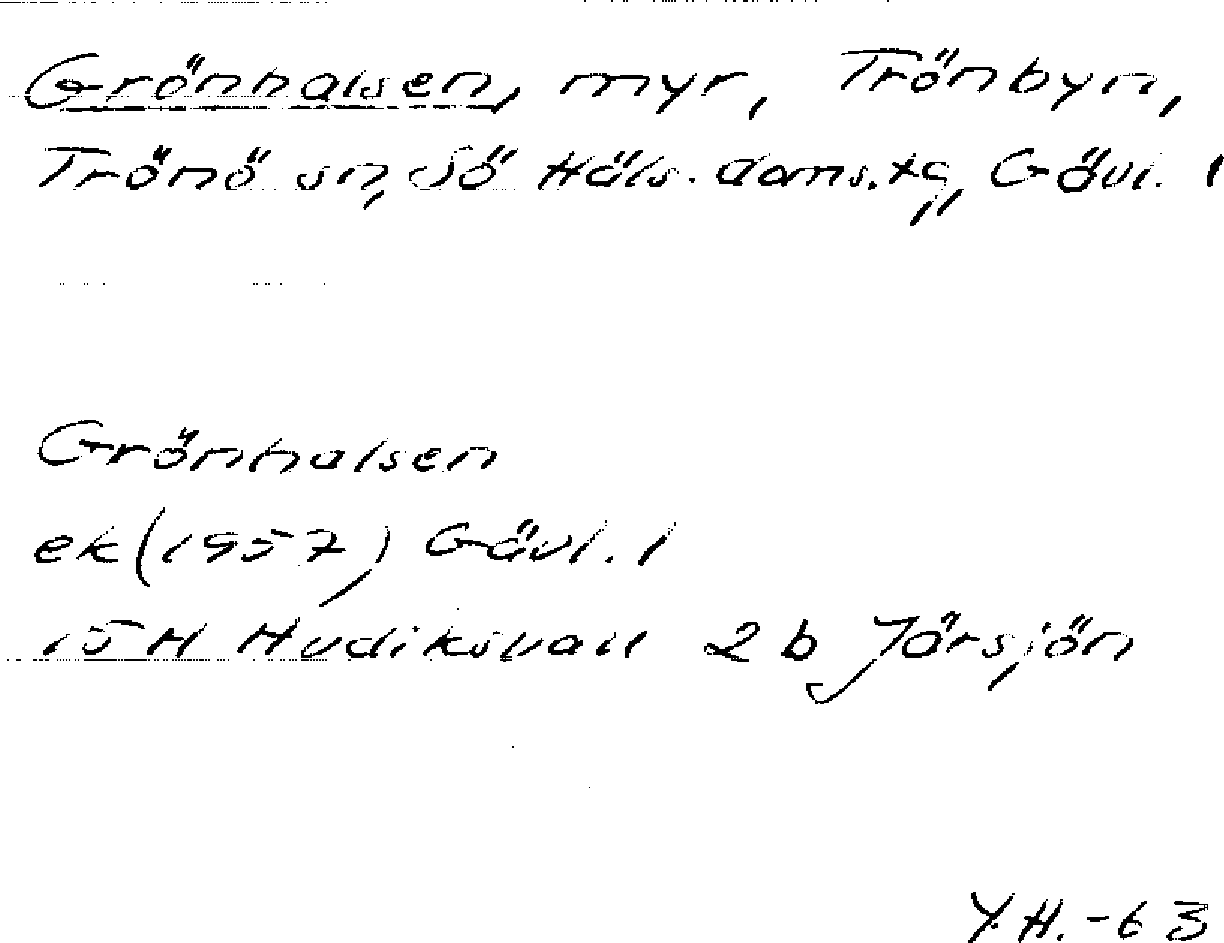 Grönhalsen, myr, Trönbyn,
Trönö sn, Sö Häls. doms.tg, Gävl. l
Grönhalsen
ek (1957) Gävl. l
15H Hudiksvall 2 b Järsjön
Y.H.-63